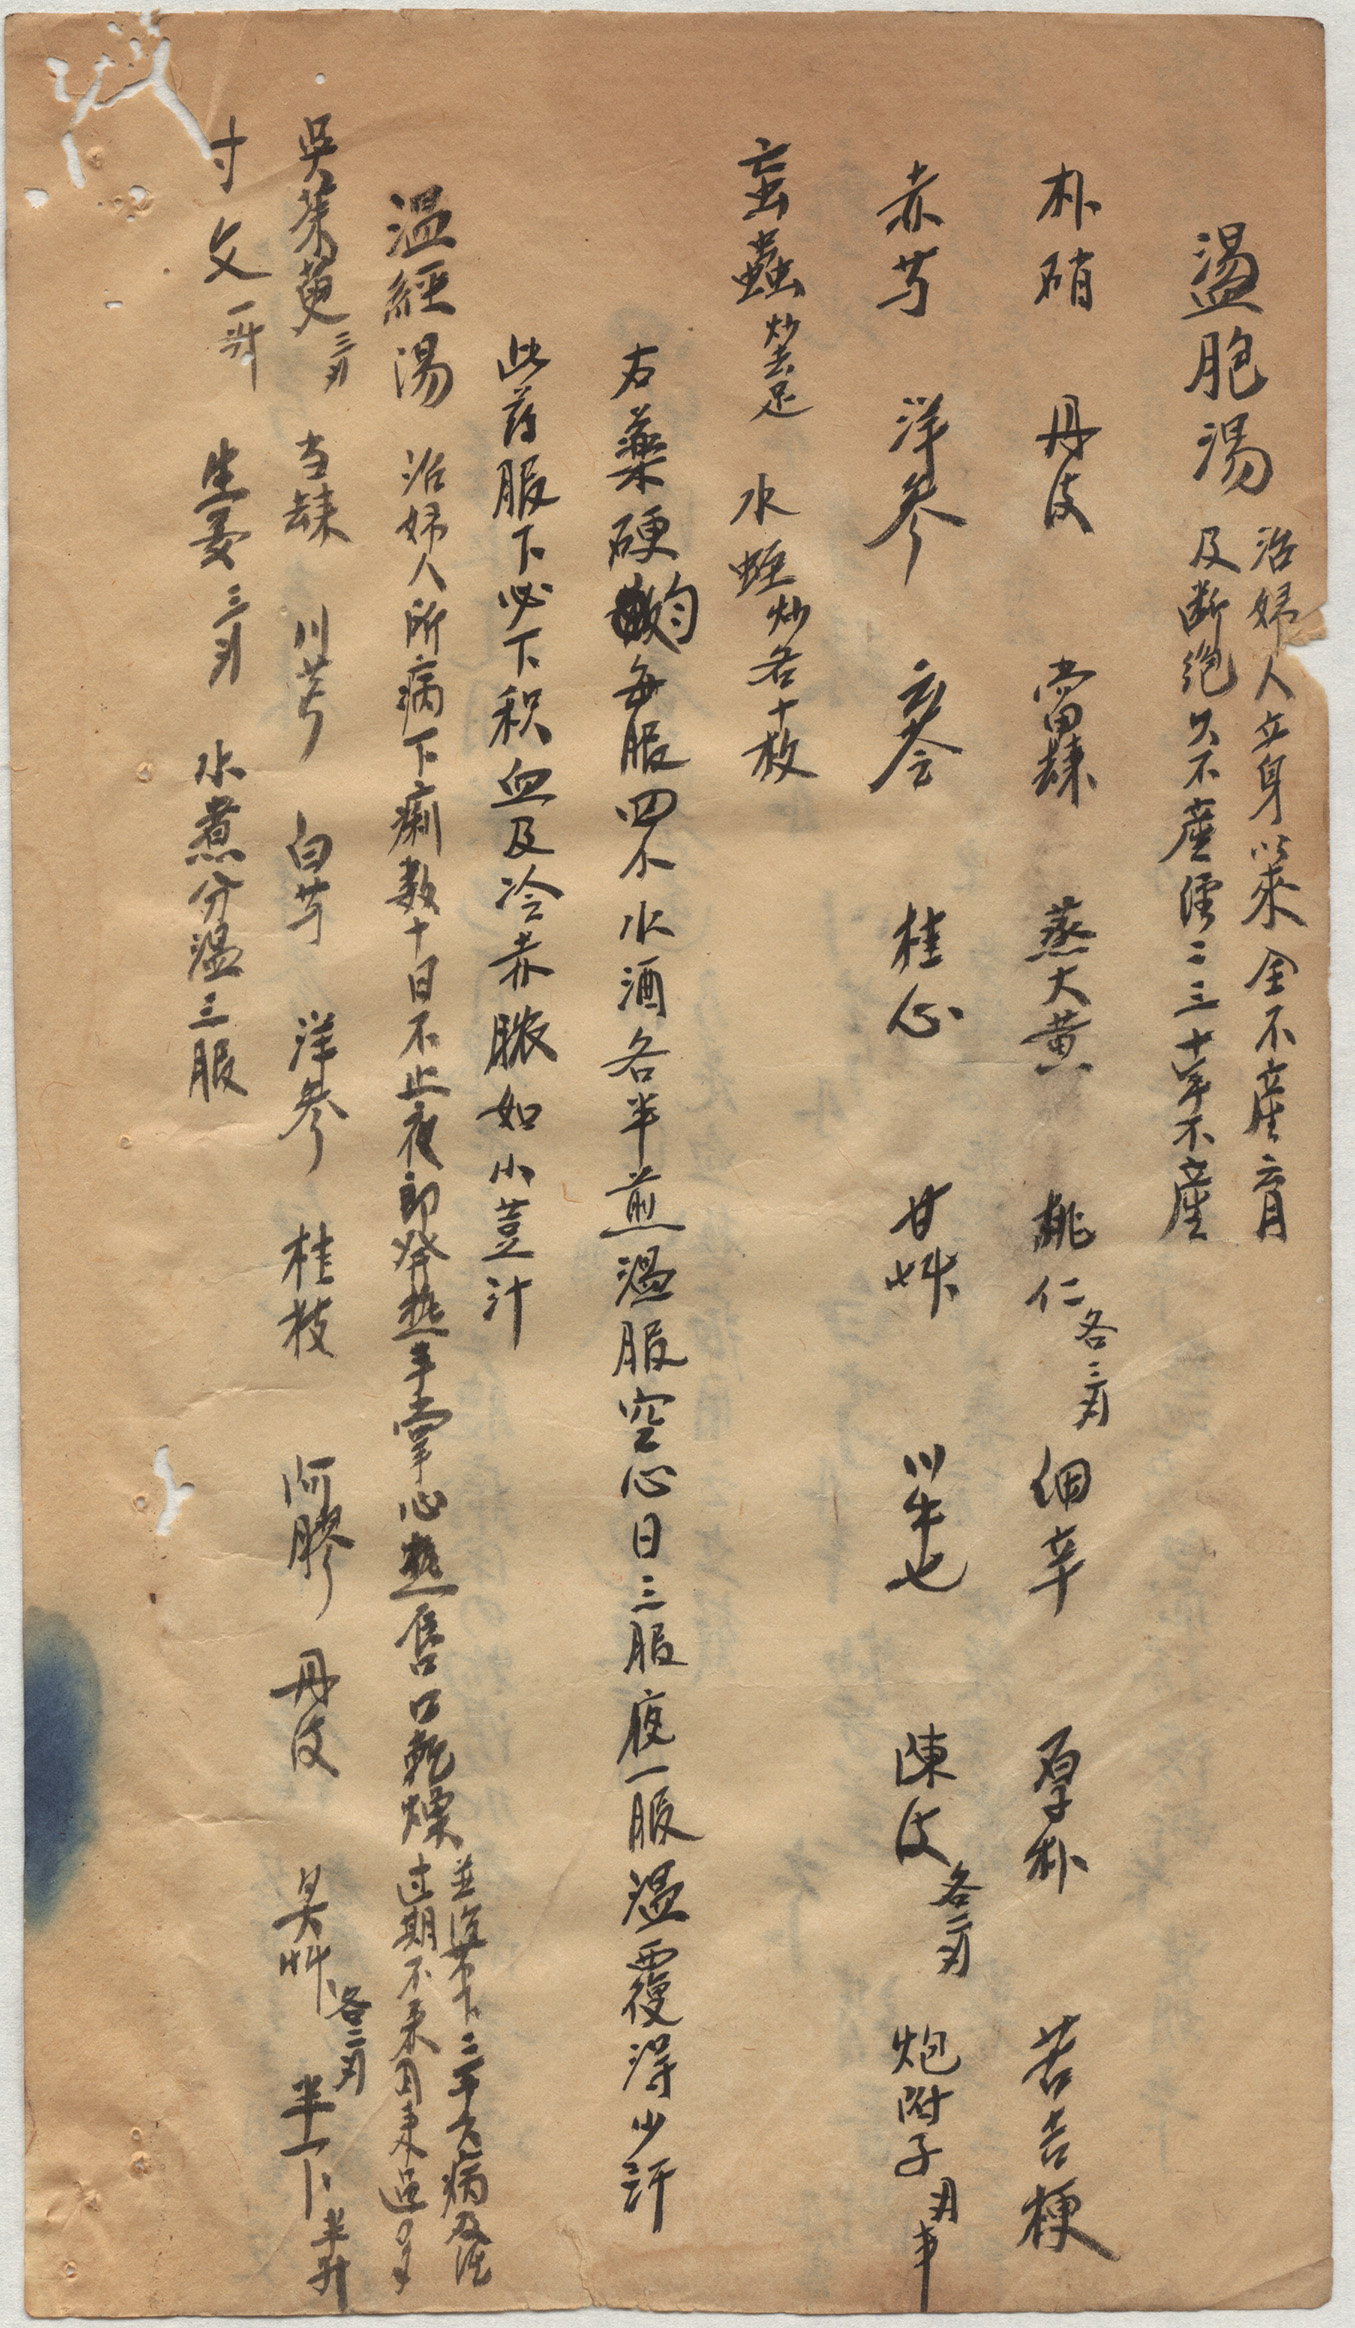 溫胞湯 治婦人立身以來全不產育
及断绝久不產經二三十年不產
朴硝 丹皮 當歸 蒸大黄 桃仁各三刃 细辛 厚朴 苦吉梗
赤芍 洋參 苓 桂心 甘艸 川牛七 陳皮各二刃 炮附子刃半
虻蟲炒去足 水蛭炒各十枚
右藥硬 均每服四小水酒各半煎溫服空心日三服夜一服溫覆得少汗
此药服下必下积血及冷赤膿如小荳汁
溫經湯 治婦人所病下痢数十日不止夜即發热手掌心热唇口乾燥 並治帶下三十六病及
过期不來月來過多
吳茱萸三刃 当歸 川芎 白芍 洋參 桂枝 阿膠 丹皮 艸各二刃 半下半升
寸文一升 生姜三刃 水煮分溫三服